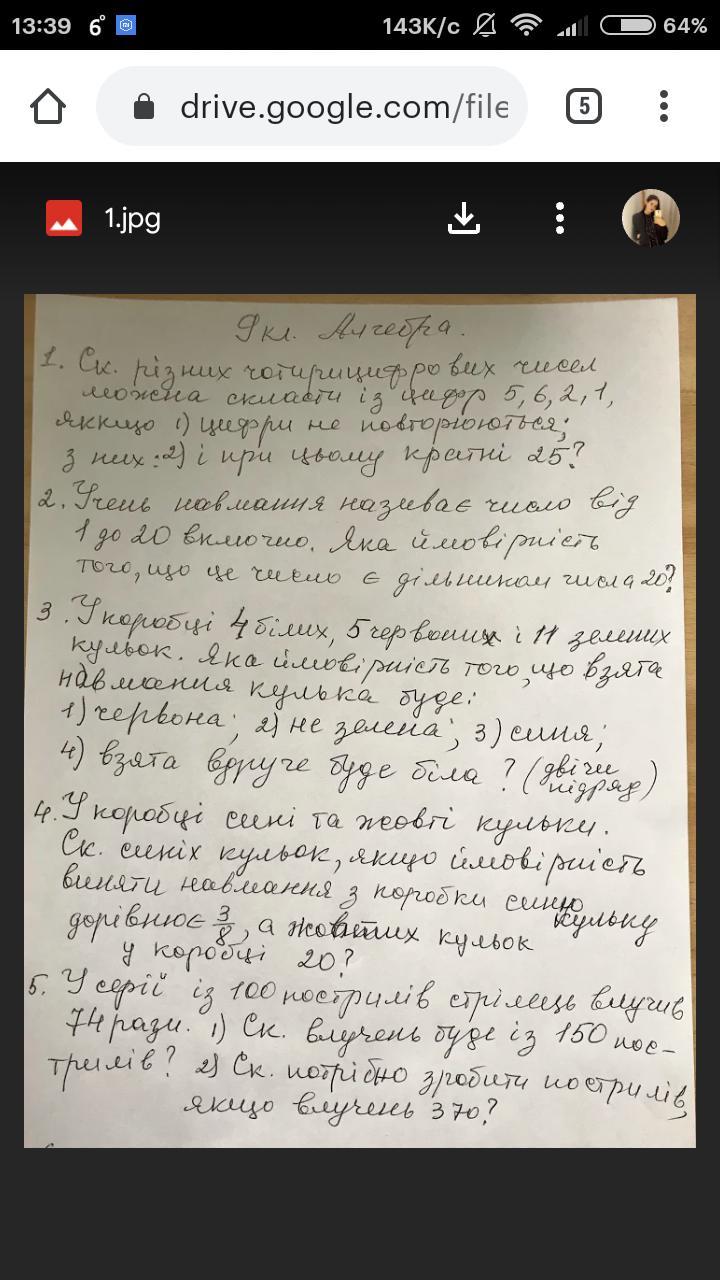 13:39 6° 143K/c 64%
drive.google.com/file
5
1.jpg
9кл. Алгебра.
1. Ск. різних чотирицифрових чисел
можна скласти із цифр 5, 6, 2, 1,
яккщо 1) цифри не повторюються;
з них: 2) і при цьому кратні 25?
2. Учень навмання називає число від
1 до 20 включно. Яка ймовірність
того, що це число є дільником числа 20?
3. У коробці 4 білих, 5 червоних і 11 зелених
кульок. Яка ймовірність того, що взята
навмання кулька буде:
1) червона; 2) не зелена; 3) синя;
4) взята вдруге буде біла? (двічи
підряд)
4. У коробці сині та жовті кульки.
Ск. синіх кульок, якщо ймовірність
виняти навмання з коробки синю
кульку
дорівнює 3/8, а жовтих кульок
у коробці 20?
5. У серії із 100 пострилів стрілець влучив
74 рази. 1) Ск. влучень буде із 150 пос-
трилів? 2) Ск. потрібно зробити пострилів,
якщо влучень 370?